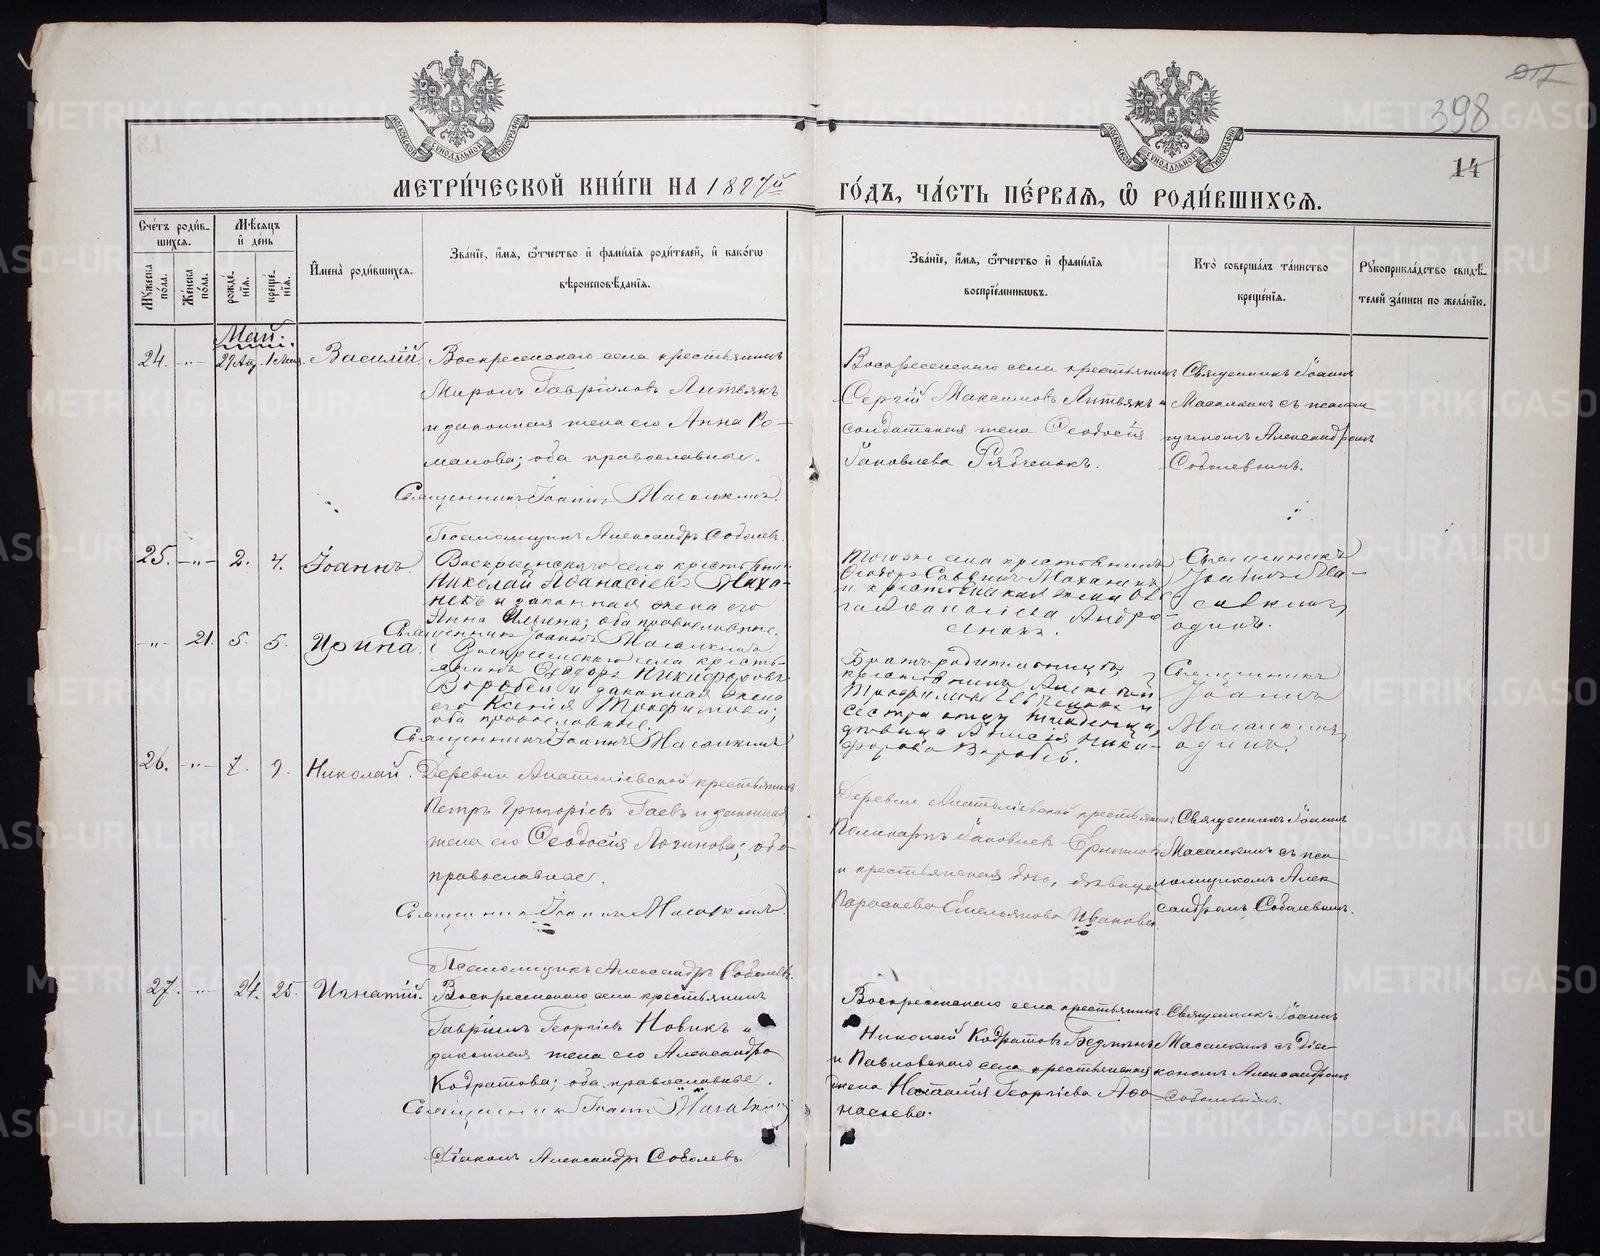 917
398
14
МОСКОВСКОЙ СѴНОДАЛЬНОЙ ТИПОГРАФІИ
МОСКОВСКОЙ СѴНОДАЛЬНОЙ ТИПОГРАФІИ
МЕТРИ́ЧЕСКОЙ КНИ́ГИ НА 1897й
ГО́ДЪ, ЧА́СТЬ ПЕ́РВАЯ, Ѽ РОДИ́ВШИХСЯ.
Сче́тъ роди́в-
шихся.
Мѣ́сяцъ
и҆ де́нь
Мꙋ́жеска по́ла.
Же́нска по́ла.
рожде́-
нїѧ.
креще́-
нїѧ.
И҆мена̀ роди́вшихся.
Зва́нїе, и҆́мѧ, ѻ҆́тчество и҆ фами́лїѧ роди́телей, и҆ како́гѡ
вѣроисповѣ́данїѧ.
Зва́нїе, и҆́мѧ, ѻ҆́тчество и҆ фами́лїѧ
воспрїе́мникѡвъ.
Кто̀ соверша́лъ та́инство
креще́нїѧ.
Рꙋкоприкла́дство свидѣ́-
телей за́писи по жела́нїю.
Май.
24. -"- 27 Апр. 1 Мая Василій.
Воскресенскаго села крестьянинъ
Миронъ Гавріиловъ Литвякъ
и законная жена его Анна Ро-
манова; оба православные.
Священникъ Іоаннъ Масалкинъ
Псаломщикъ Александръ Соболевъ.
Воскресенскаго села крестьянинъ
Сергій Максимовъ Литвякъ и
солдатская жена Ѳеодосія
Яковлева Рябченокъ.
Священникъ Іоаннъ
Масалкинъ съ псалом
щикомъ Александромъ
Соболевымъ.
25. -"- 2. 4. Іоаннъ.
Воскресенскаго села крестьянинъ
Николай Аѳанасіевъ Маха-
некъ и законная жена его
Анна Ильина; оба православные.
Священникъ Іоаннъ Масалкинъ
Тогоже села крестьянинъ
Ѳеодоръ Саввинъ Маханекъ
и крестьянская жена
Аѳанасіева Андро-
сенокъ.
Священникъ
Іоаннъ Ма-
салкинъ
одинъ.
-"- 21. 5. 5. Ирина.
Воскресенскаго села кресть-
янинъ Ѳеодоръ Никифоровъ
Воробей и законная жена
его Ксенія Трофимова;
оба православные.
Священникъ Іоаннъ Масалкинъ
Братъ родительницы
крестьянинъ Алексѣй
Трофимовъ и
сестра отца младенца,
дѣвица Анисія Ники-
форова Воробей.
Священникъ
Іоаннъ
Масалкинъ
одинъ.
26. -"- 7. 9. Николай.
Деревни Анатоліевской крестьянинъ
Петръ Григоріевъ Гаевъ и законная
жена его Ѳеодосія Логинова; оба
православные.
Священникъ Іоаннъ Масалкинъ
Псаломщикъ Александръ Соболевъ.
Деревни Анатоліевской крестьянинъ
Поликарпъ Яковлевъ
и крестьянская дочь, дѣвица
Параскева Емельянова Иванова.
Священникъ Іоаннъ
Масалкинъ съ пса-
ломщикомъ Алек-
сандромъ Соболевымъ.
27. -"- 24. 25. Игнатій.
Воскресенскаго села крестьянинъ
Гавріилъ Георгіевъ Новикъ и
законная жена его Александра
Кодратова; оба православные.
Священникъ Іоаннъ Масалкинъ
Діаконъ Александръ Соболевъ.
Воскресенскаго села крестьянинъ
Николай Кодратовъ
и Павловскаго села крестьянская
жена Наталія Георгіева Аѳа-
насьева.
Священникъ Іоаннъ
Масалкинъ съ Діа-
кономъ Александромъ
Соболевымъ.
METRIKI.GASO-URAL.RU